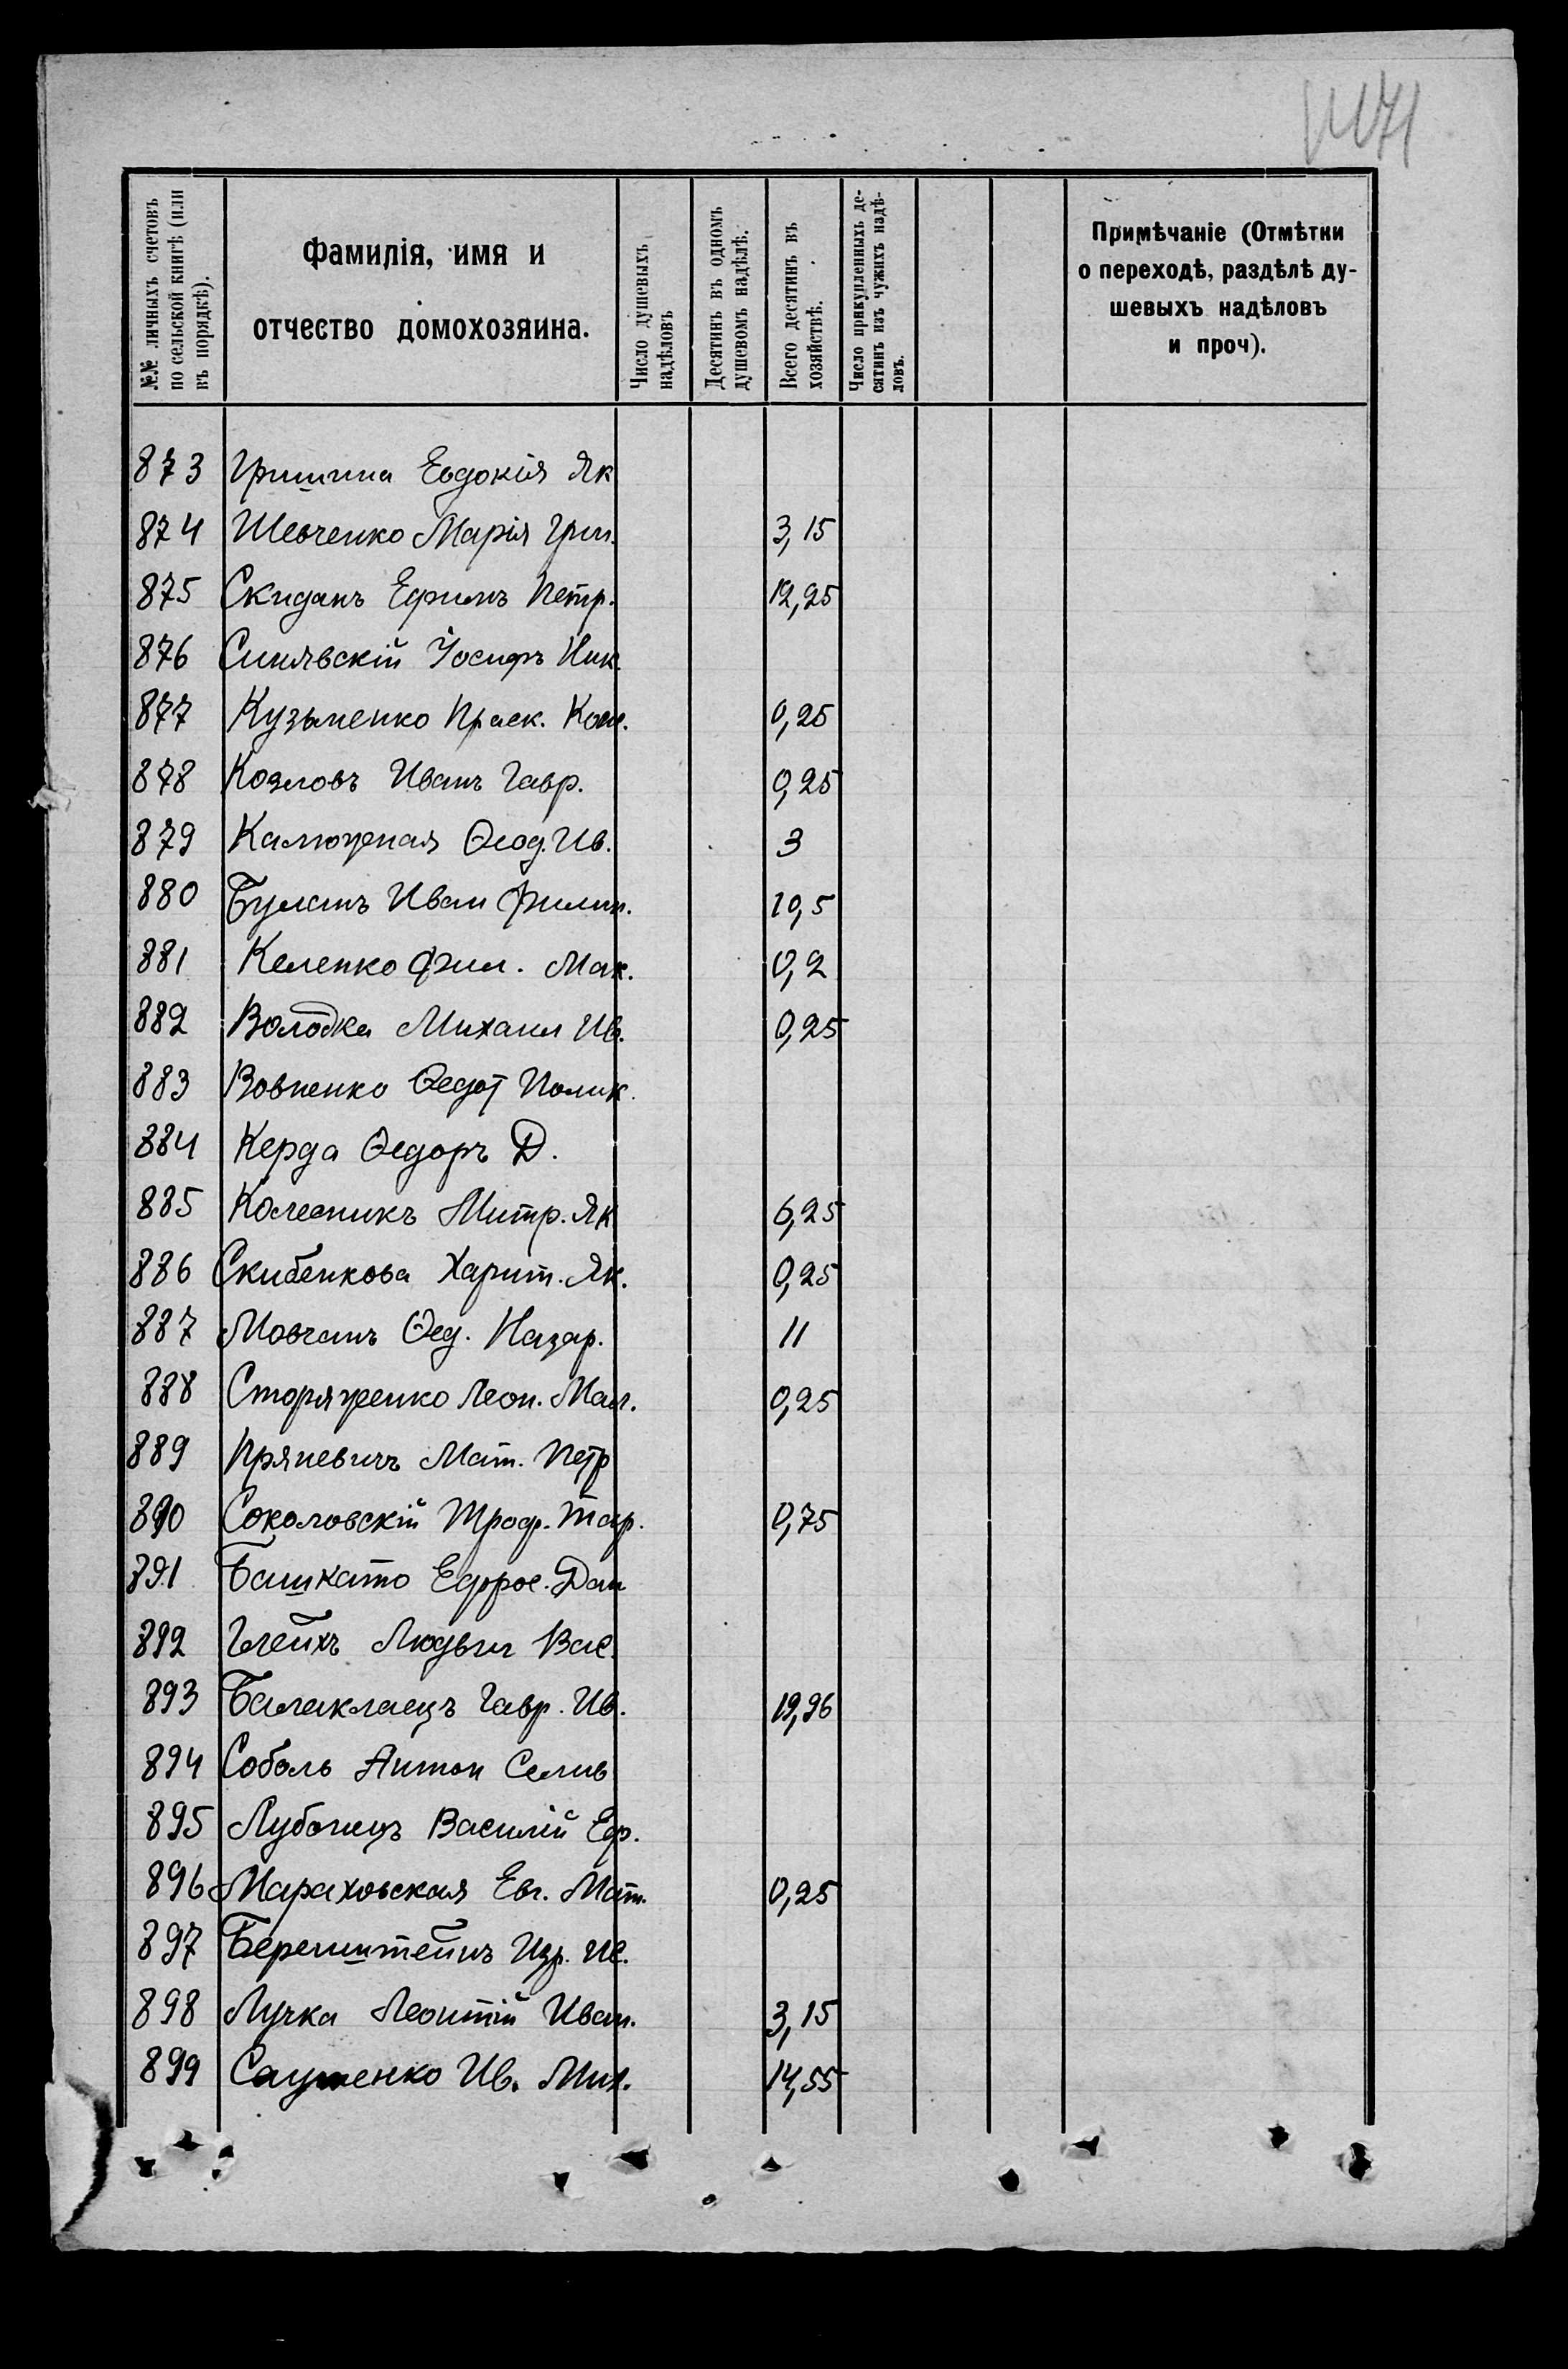 №№ личныхъ счетовъ
по сельской книгѣ (или
въ порядкѣ).
Фамилія, имя и
отчество домохозяина.
Число душевыхъ
надѣловъ
Десятинъ въ одномъ
душевомъ надѣлѣ.
Всего десятинъ въ
хозяйствѣ.
Число прикупленныхъ де-
сятинъ изъ чужихъ надѣ-
ловъ.
Примѣчаніе (Отмѣтки
о переходѣ, раздѣлѣ ду-
шевыхъ надѣловъ
и проч).
873 Гришина Евдокія Як
874 Шевченко Марія Григ. 3,15
875 Скиданъ Ефимъ Петр. 12,25
876 Синявскій Іосифъ Ник.
877 Кузьменко Праск. 0,25
878 Козловъ Иванъ Гавр. 0,25
879 Калюжная Ѳеод. Ив. 3
880 Буланъ Иван Филип. 10,5
881 Келепко Фил. Мак. 0,2
882 Володка Михаил Ив. 0,25
883 Вовненко Ѳедот Полик.
884 Керда Ѳедоръ Д.
885 Колесникъ Митр. Як 6,25
886 Скибенкова Харит. Як. 0,25
887 Мовчанъ Ѳед. Назар. 11
888 Стороженко Леон. 0,25
889 Пряневичъ Мат. Петр
890 Соколовскій Троф. Тар. 0,75
891 Башкато Ефрос. Дан
892 Людвиг Вас.
893 Балаклаецъ Гавр. Ив. 19,96
894 Соболь Антон Селив
895 Лубенецъ Василій Еф.
896 Мараховская Евг. Мат. 0,25
897 Беренштейнъ Изр. Ис.
898 Лучка Леонтій Иван. 3,15
899 Саутенко Ив. Мих. 14,55